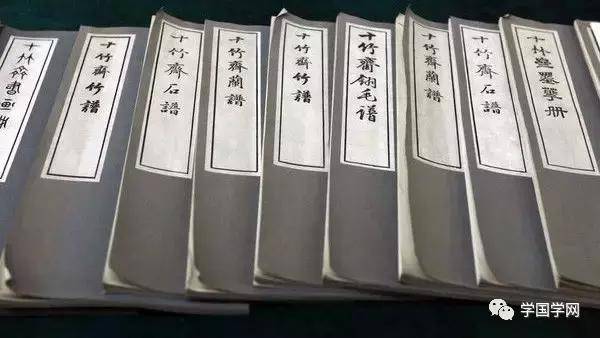 十竹齋竹譜
十竹齋石譜
十竹齋蘭譜
十竹齋竹譜
十竹齋翎毛譜
十竹齋蘭譜
十竹齋石譜
十竹齋墨華册
学国学网